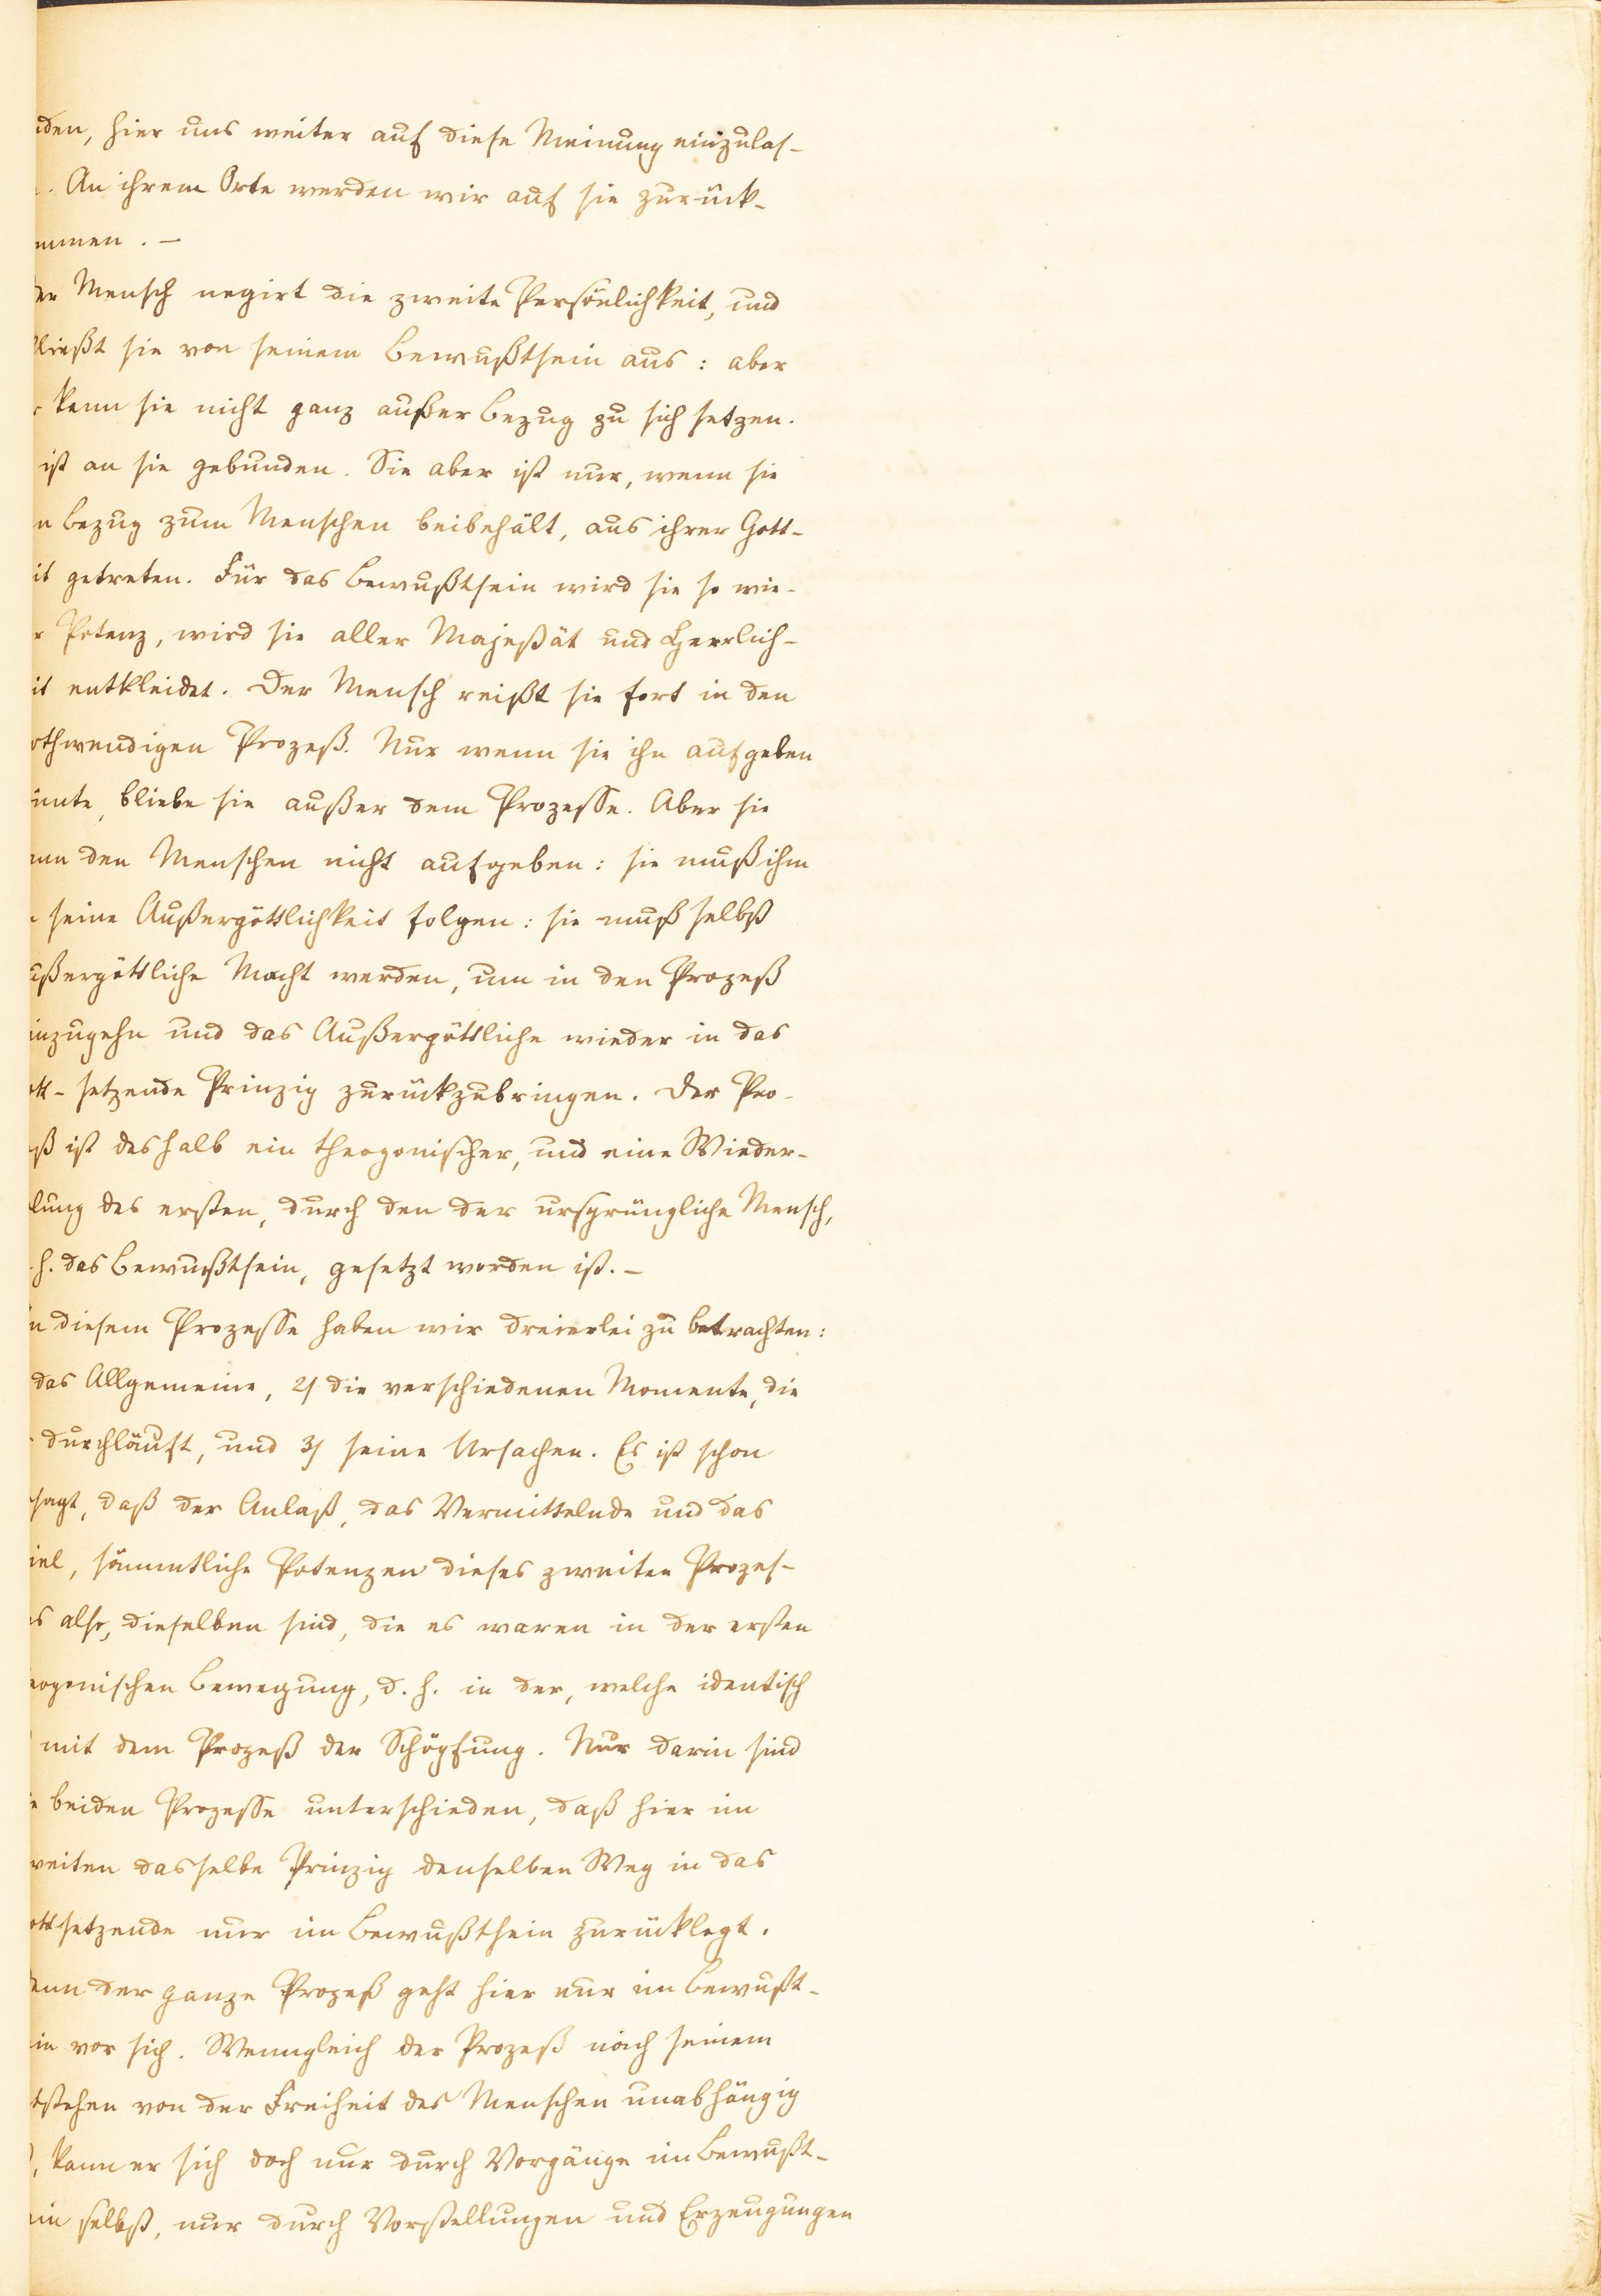 den, hier uns weiter auf diese Meinung einzulas-
. An ihrem Orte werden wir auf sie zurück-
mmen. –
der Mensch negirt die zweite Persönlichkeit, und
ließt sie von seinem Bewußtsein aus: aber
kann sie nicht ganz außer Bezug zu sich setzen.
ist an sie gebunden. Sie aber ist nur, wenn sie
n Bezug zum Menschen beibehält, aus ihrer Gott-
it getreten. Für das Bewußtsein wird sie so wie-
r Potenz, wird sie aller Majestät und Herrlich-
it entkleidet. Der Mensch reißt sie fort in den
othwendigen Prozeß. Nur wenn sie ihn aufgeben
önnte, bliebe sie außer dem Prozesse. Aber sie
ann den Menschen nicht aufgeben: sie muß ihm
seine Außergöttlichkeit folgen: sie muß selbst
ußergöttliche Macht werden, um in den Prozeß
inzugehn und das Außergöttliche wieder in das
ott-setzende Prinzip zurückzubringen. Der Pro-
eß ist deshalb ein theogonischer, und eine Wieder-
lung des ersten, durch den der ursprüngliche Mensch,
h. das Bewußtsein, gesetzt worden ist. –
In diesem Prozesse haben wir dreierlei zu betrachten:
das Allgemeine, 2) die verschiedenen Momente, die
durchläuft, und 3) seine Ursachen. Es ist schon
sagt, daß der Anlaß, das Vermittelnde und das
iel, sämmtliche Potenzen dieses zweiten Prozes-
es also, dieselben sind, die es waren in der ersten
eogonischen Bewegung, d. h. in der, welche identisch
mit dem Prozeß der Schöpfung. Nur darin sind
e beiden Prozesse unterschieden, daß hier im
weiten dasselbe Prinzip denselben Weg in das
ottsetzende nur im Bewußtsein zurücklegt.
enn der ganze Prozeß geht hier nur im Bewußt-
in vor sich. Wenngleich der Prozeß nach seinem
tstehen von der Freiheit des Menschen unabhängig
, kann er sich doch nur durch Vorgänge im Bewußt-
ein selbst, nur durch Vorstellungen und Erzeugungen